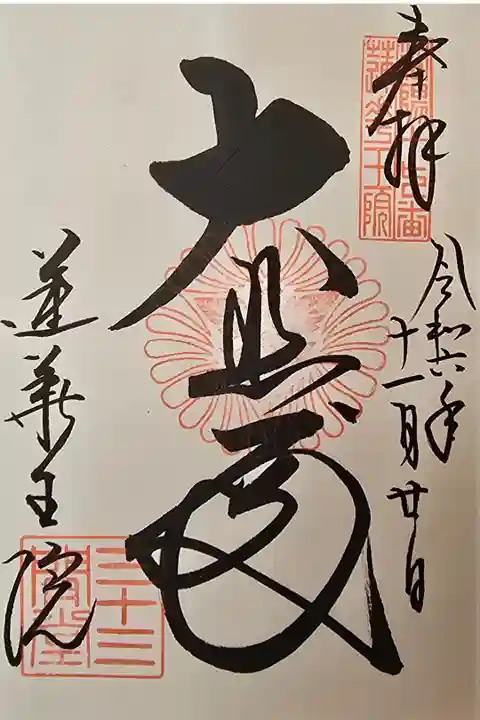 奉拝
蓮華王院
令和六年
十一月廿日
大悲殿
蓮華王院
三十三
間堂